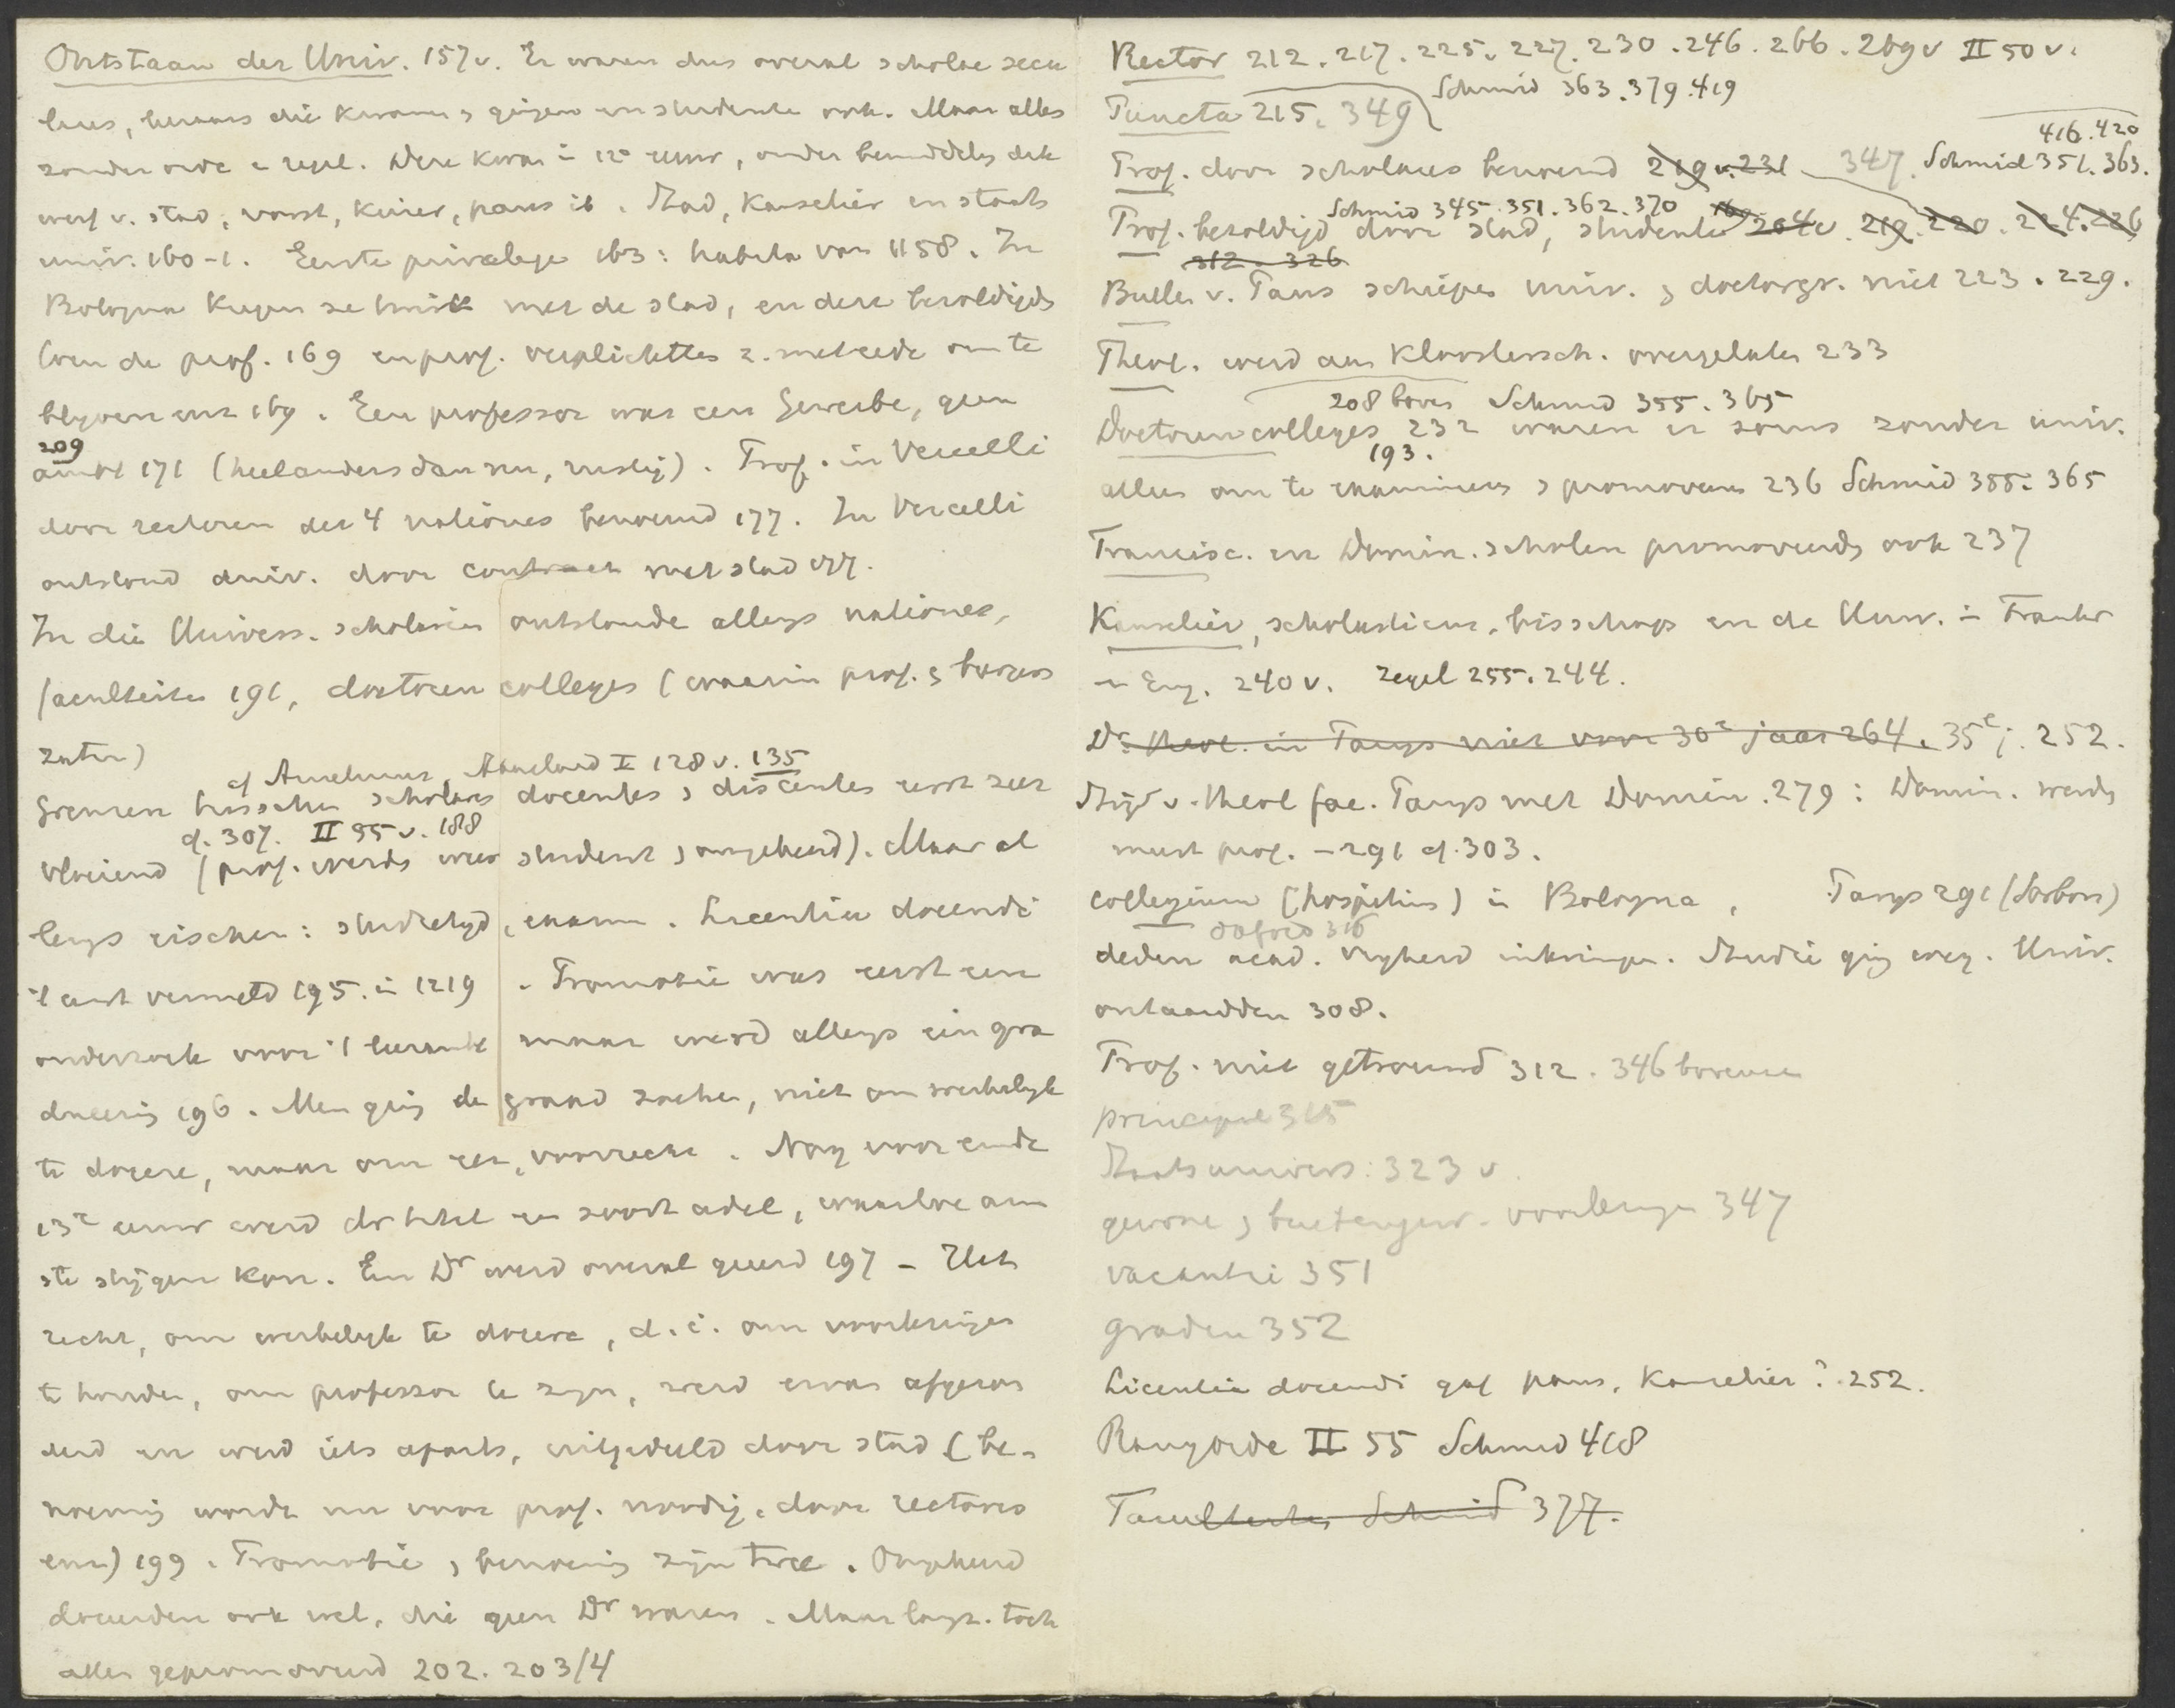 Ontstaan der Univ. 157v. Er waren dus overal scholae secu
lares, leeraars die kwamen en gingen en studenten ook. Maar alles
zonder orde en regel. Deze kwam in 12e eeuw, onder bemiddeling ook
v. stad, vorst, keizer, paus ib. Stad, kanselier en staats
univ. 160-1. Eerste privilege 163: habita van 1158. In
Bologna kregen ze twist met de stad, en deze bezoldigde
toen de prof. 169 en prof. verplichtten z. met eede om te
blijven enz 169. Een professor was een Gewerbe, geen
209
ambt 171 (heel anders dan nu, rustig). Prof. in Vercelli
door rectoren der 4 nationes benoemd 177. In Vercelli
ontstond univ. door contract met stad 177.
In die Univers. scholarium ontstonden allengs nationes,
faculteiten 191, doctoren colleges (waarin prof. en burgers
zaten)
cf Anselmus, Abaelard I 128v. 135
Grenzen tusschen scholares docentes en discentes eerst zeer
cf. 307. II 95v. 188
vloeiend (prof. werd weer student en omgekeerd). Maar al
lengs eischen: studietijd, exam. Licentia docendi
't eerst vermeld 195. in 1219. Promotie was eerst een
onderzoek voor 't leerambt maar werd allengs een gra
dueering 196. Men ging de graad zoeken, niet om werkelijk
te doceren, maar om eer, voorrecht. Nog voor einde
13e eeuw werd dr titel een soort adel, waartoe am
ste stijgen kon. Een Dr werd overal geeerd 197 - Het
recht, om werkelijk te doceren, d.i. om voorlezingen
te houden, om professor te zijn, werd ervan afgezon
derd en werd iets aparts, uitgedeeld door stad (be-
noeming werd nu voor prof. noodig, door rectores
enz) 199. Promotie en benoeming zijn twee. Ongekeurd
doceerden ook wel, die geen Dr waren. Maar langz. toch
allen gepromoveerd 202. 203/4
Rector 212. 217. 225. 227. 230. 246. 266. 269v II 50v.
Schmid 363. 379. 419
Puncta 215. 349
416. 420
Prof. door scholares benoemd 219 v. 231 347. Schmid 351. 363.
Schmid 345. 351. 362. 370
Prof. bezoldigd door stad, studenten 169 204v. 219. 220. 224. 226
312. 326
Bullen v. Paus schiepen univ. en doctorgr. niet 223. 229.
Theol. werd aan kloostersch. overgelaten 233
208 boven Schmid 355. 365
Doctorencolleges 232 waren er soms zonder univ.
193.
alleen om te examineeren en promoveeren 236 Schmid 355. 365
Francisc. en Domin. scholen promoveerden ook 237
Kanselier, scholasticus, bisschop en de Univ. in Frankr
en Eng. 240v. zegel 255. 244.
Dr. theol. in Parijs niet voor 30e jaar 264. 35e j. 252.
Strijd v. theol fac. Parijs met Domin. 279: Domin. werden
meest prof. - 291 cf. 303.
Collegium (hospitium) in Bologna, Parijs 291 (Sorbon)
Oxford 316
deden acad. vrijheid inkrimpen. Studie ging weg. Univ.
ontaardden 308.
Prof. niet getrouwd 312. 346 bovenaan
principal 315
Staatsunivers: 323 v.
gewone en buitengew. voorlezingen 347
vacantie 351
graden 352
Licentia docendi gaf paus, kanselier? 252.
Rangorde II 55 Schmid 418
Faculteiten Schmid 377.